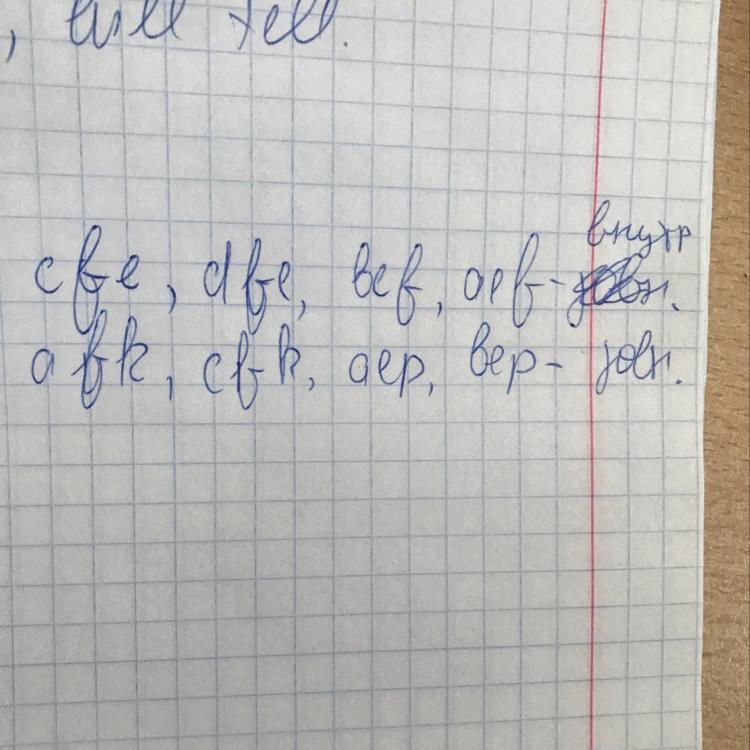 , will tell.
внутр
cfe, dfe, bef, aef -
afk, cfk, aep, bep -